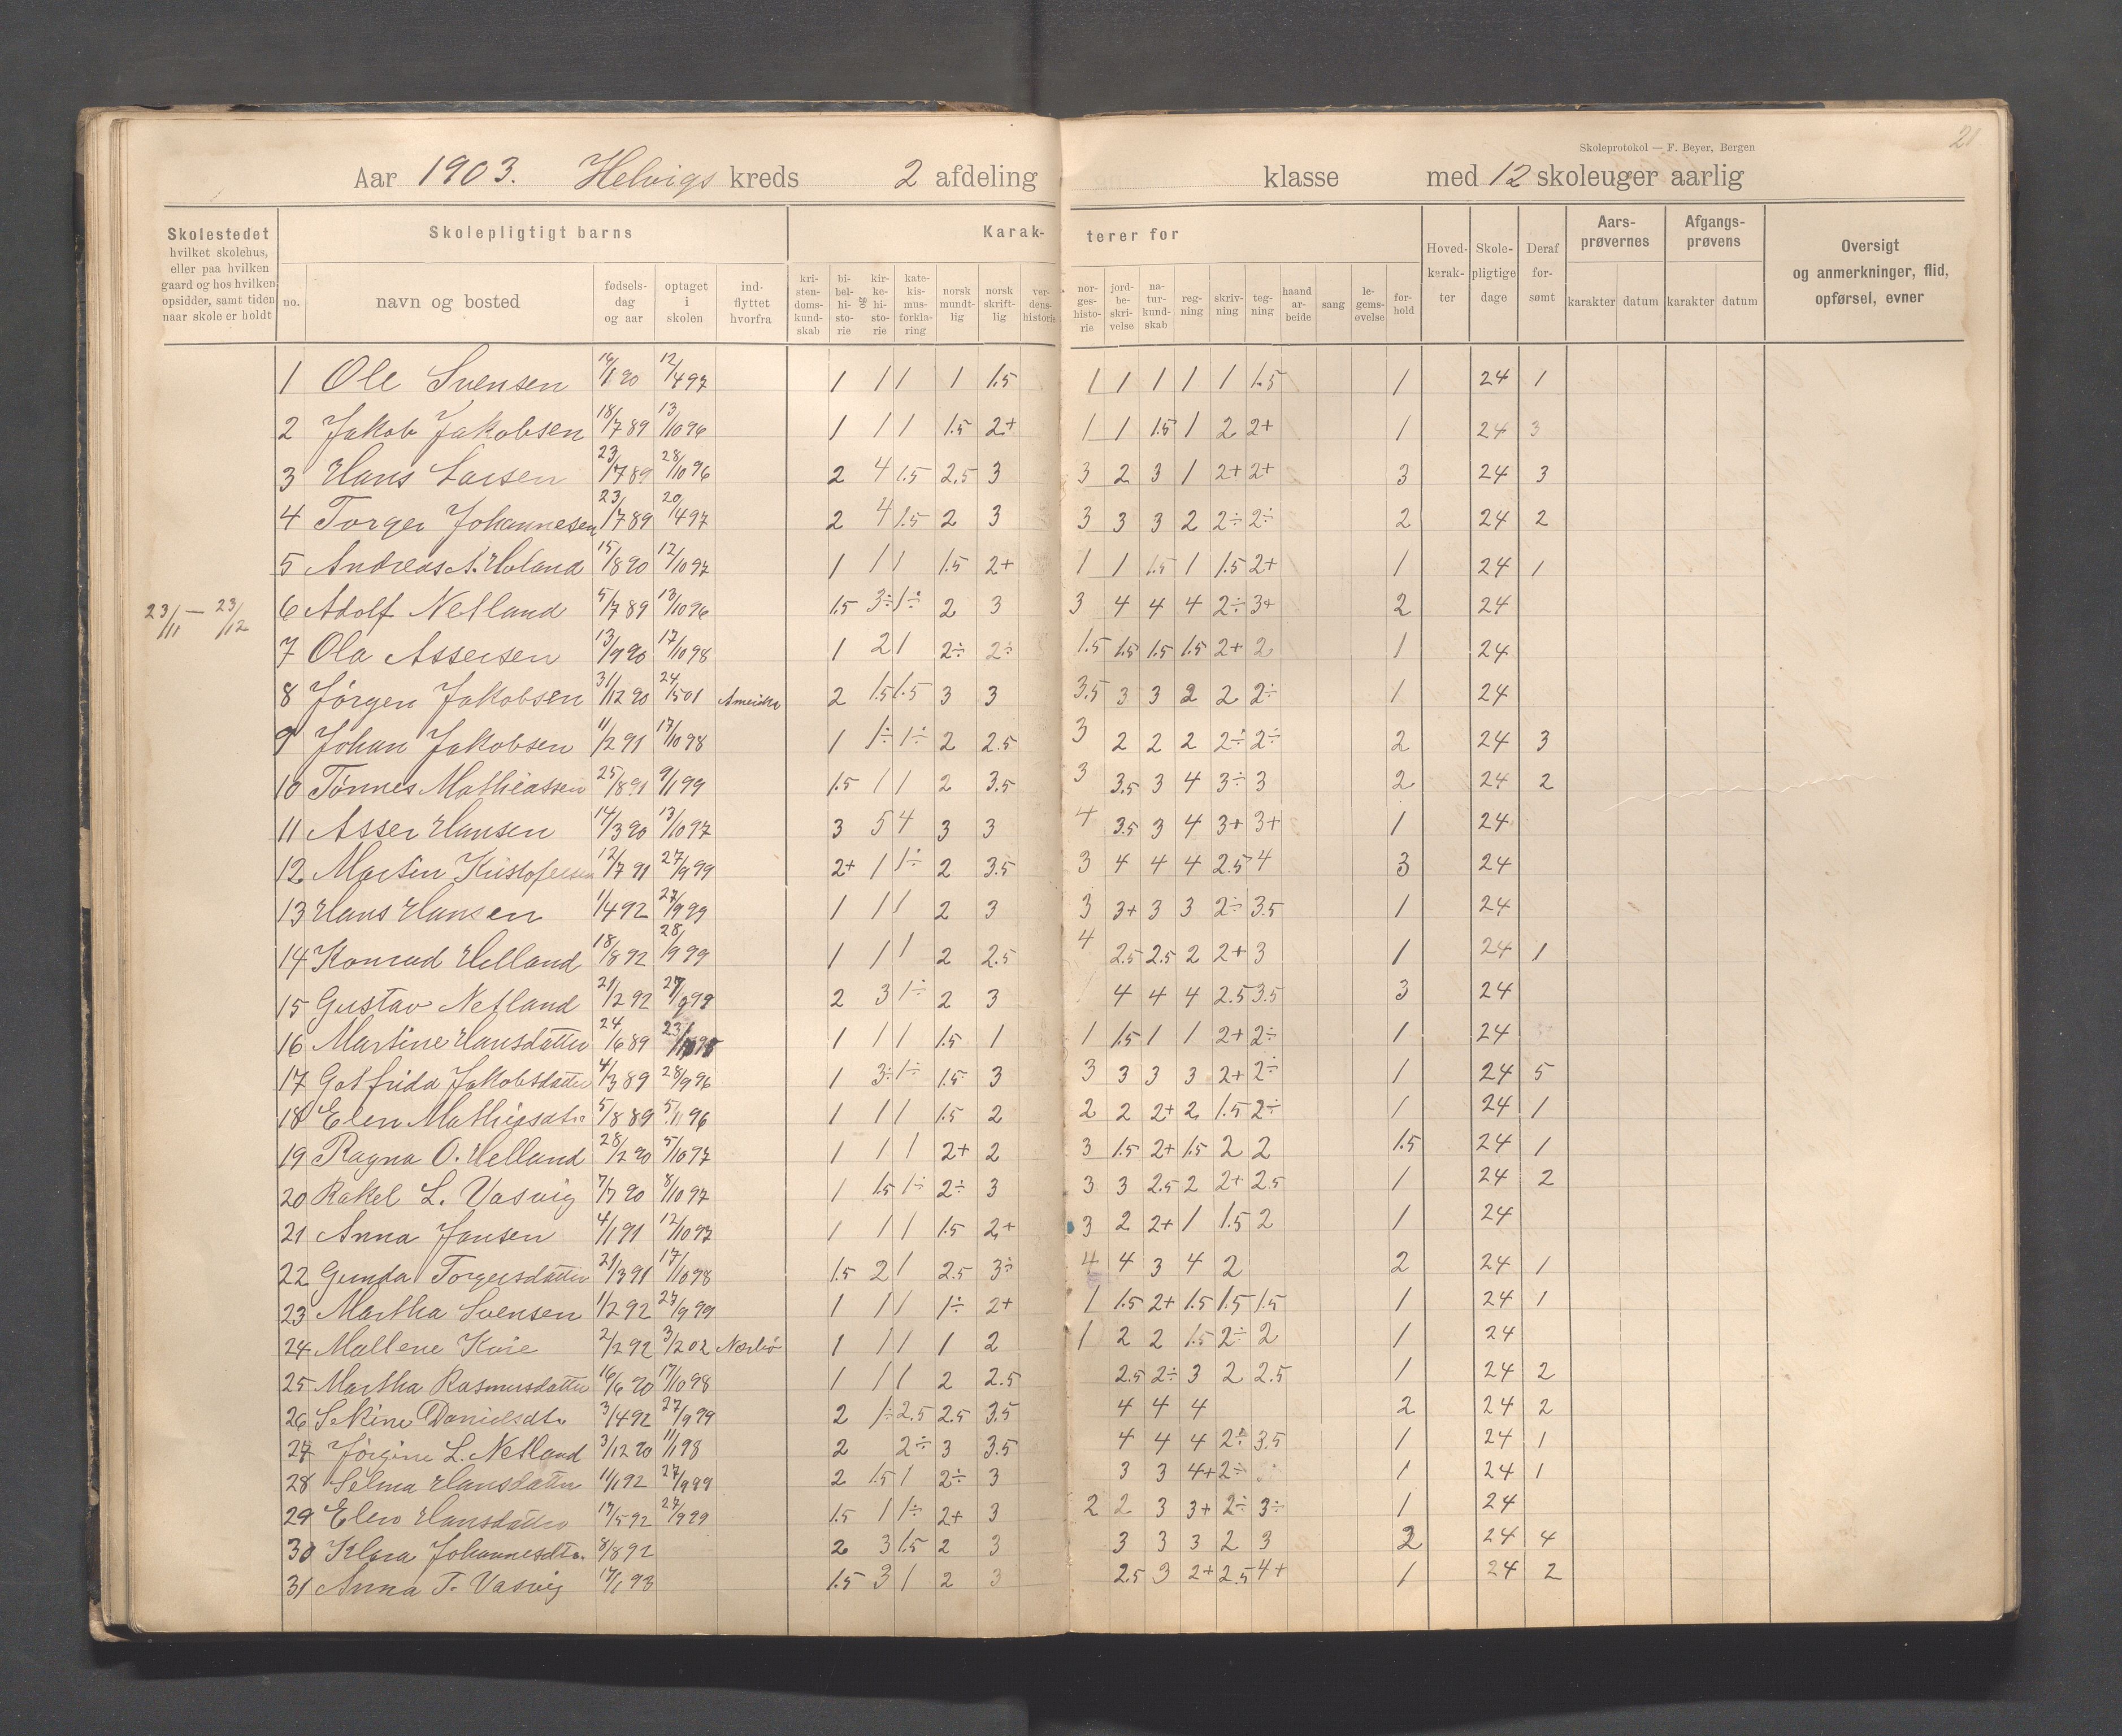 21
Skoleprotokol — F. Beyer, Bergen
Aar 1903. Helvigs kreds 2 afdeling klasse med 12 skoleuger aarlig
Skolestedet hvilket skolehus, eller paa hvilken gaard og hos hvilken opsidder, samt tiden naar skole er holdt
Skolepligtigt barns
Karakterer for
no. navn og bosted fødselsdag og aar optaget i skolen indflyttet hvorfra kristendomskundskab bibelhistorie og kirkehistorie katekismusforklaring norsk mundtlig norsk skriftlig verdenshistorie norgeshistorie jordbeskrivelse naturkundskab regning skrivning tegning haandarbeide sang legemsøvelse forhold
Hovedkarakter Skolepligtige dage Deraf forsømt
Aarsprøvernes karakter datum
Afgangsprøvens karakter datum
Oversigt og anmerkninger, flid, opførsel, evner
1 Ole Svensen 16/1 90 12/4 97 1 1 1 1 1.5 1 1 1 1 1 1.5 1 24 1
2 Jakob Jakobsen 18/7 89 13/10 96 1 1 1 1.5 2+ 1 1 1.5 1 2 2+ 1 24 3
3 Hans Larsen 23/7 89 28/10 96 2 4 1.5 2.5 3 3 2 3 1 2+ 2+ 3 24 3
4 Torger Johannesen 23/7 89 20/4 97 2 4 1.5 2 3 3 3 3 2 2÷ 2÷ 2 24 2
5 Andreas A. Høland 15/8 90 12/10 97 1 1 1 1.5 2+ 1 1 1.5 1 1.5 2+ 1 24 1
23/11 — 23/12
6 Adolf Netland 5/7 89 13/10 96 1.5 3÷ 1÷ 2 3 3 4 4 4 2÷ 3+ 2 24
7 Ola Assersen 13/9 90 17/10 98 1 2 1 2÷ 2÷ 1.5 1.5 1.5 1.5 2+ 2 1 24
8 Jørgen Jakobsen 31/12 90 24/5 01 Amerika 2 1.5 1.5 3 3 3.5 3 3 2 2 2÷ 1 24
9 Johan Jakobsen 11/2 91 17/10 98 1 1÷ 1÷ 2 2.5 3 2 2 2 2÷ 2÷ 2 24 3
10 Tønnes Mathiassen 25/8 91 9/1 99 1.5 1 1 2 3.5 3 3.5 3 4 3÷ 3 2 24 2
11 Asser Hansen 14/3 90 13/10 97 3 5 4 3 3 4 3.5 3 4 3+ 3+ 1 24
12 Martin Kristofersen 12/7 91 27/9 99 2+ 1 1÷ 2 3.5 3 4 4 4 2.5 4 3 24
13 Hans Hansen 1/4 92 27/9 99 1 1 1 2 3 3 3+ 3 3 2÷ 3.5 1 24
14 Konrad Helland 18/8 92 28/9 99 1 1 1 2 2.5 4 2.5 2.5 2 2+ 3 1 24 1
15 Gustav Netland 21/2 92 27/9 99 2 3 1÷ 2 3 4 4 4 2.5 3.5 3 24
16 Martine Hansdatter 24/6 89 1 1 1 1.5 1 1 1.5 1 1 2+ 2÷ 1 24
17 Gotfrida Jakobsdatter 4/3 89 28/9 96 1 3÷ 1÷ 1.5 3 3 3 3 3 2+ 2÷ 1 24 5
18 Elen Mathiasdtr 5/8 89 5/11 96 1 1 1 1.5 2 2 2 2+ 2 1.5 2÷ 1 24 1
19 Ragna O. Helland 28/2 90 5/10 97 1 1 1 2+ 2 3 1.5 2+ 1.5 2 2 1.5 24 1
20 Rakel L. Vasvig 7/7 90 8/10 97 1 1.5 1÷ 2÷ 3 3 3 2.5 2 2+ 2.5 1 24 2
21 Anna Jansen 4/1 91 12/10 97 1 1 1 1.5 2+ 3 2 2+ 1 1.5 2 1 24
22 Gunda Torgersdatter 21/3 91 17/10 98 1.5 2 1 2.5 3÷ 4 4 3 4 2 2 24 1
23 Martha Svensen 1/2 92 27/9 99 1 1 1 1÷ 2+ 1 1.5 2+ 1.5 1.5 1.5 1 24 1
24 Mallene Kvie 2/2 92 3/2 02 Nærbø 1 1 1 1 2 1 2 2 1.5 2÷ 2 1 24
25 Martha Rasmusdatter 16/6 90 17/10 98 1 1 1 2 2.5 2.5 2÷ 3 2 2.5 1 24 2
26 Sekine Danielsdtr 3/4 92 27/9 99 2 1÷ 2.5 2.5 3.5 4 4 4 2 24 2
27 Jørgine L. Netland 3/12 90 11/1 98 2 2÷ 3 3.5 4 4 4 2÷ 3.5 1 24 1
28 Selma Hansdatter 11/1 92 27/9 99 2 1.5 1 2÷ 3 3 3 4+ 2÷ 1 24 1
29 Elen Hansdatter 17/5 92 27/9 99 1.5 1 1÷ 2+ 3 2 2 3 3+ 2÷ 3÷ 1 24
30 Klara Johannesdtr. 8/8 92 2 3 1.5 2 3 3 3 3 2 3 2 24 4
31 Anna T. Vasvig 17/1 93 1.5 3 1 2 3 2.5 3 2+ 2.5 4+ 1 24 2